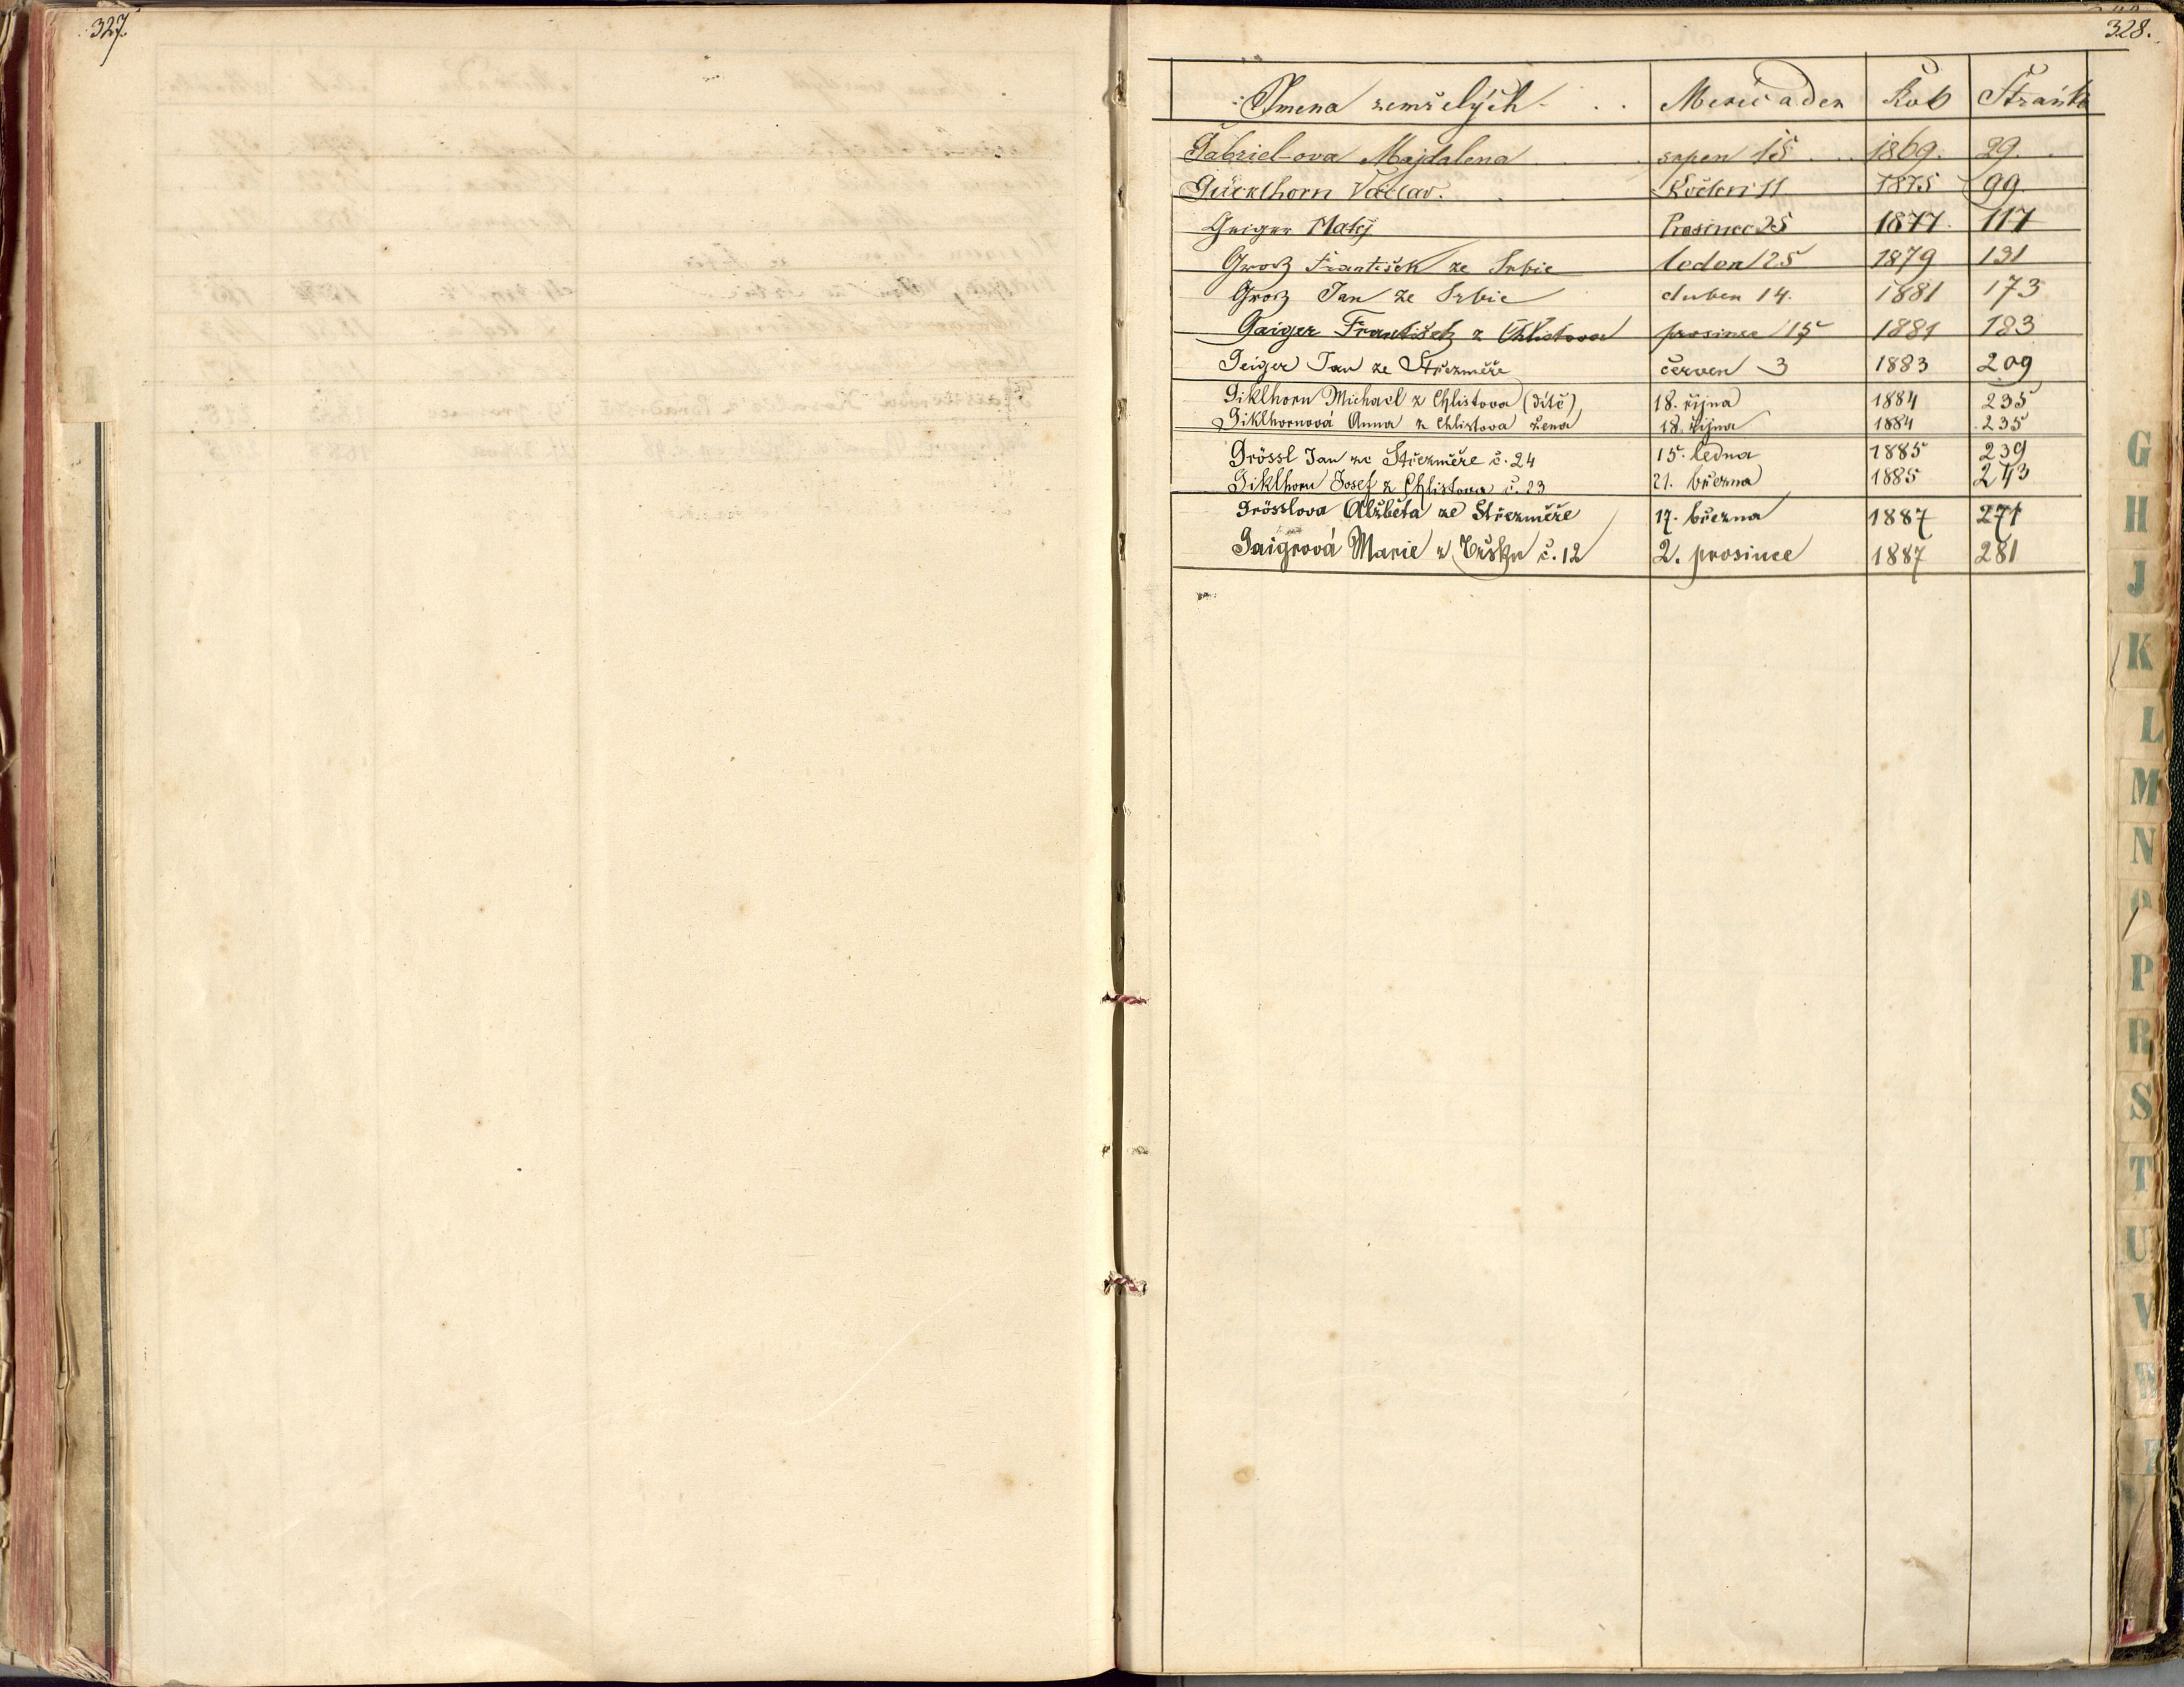 327.
328.
Jmena zemřelých
Měsíc a den
Rok
Stránk
Gabriel-ova Majdalena srpen 15 1869. 29.
Gücklhorn Václav. Květen 11 1875 99.
Geiger Matěj Prosinec 25 1877. 117
Grosz František ze Srbic leden 25 1879 131
Grosz Jan ze Srbic duben 14. 1881 173
Gaiger František z Chlistova prosince 15 1881 183
Geiger Jan ze Střezměře červen 3 1883 209
Giklhorn Michael z Chlistova (dítě) 18. října 1884 235
Giklhornová Anna z Chlistova žena 18. října 1884 235
Grössl Jan ze Střezměře č. 24 15. ledna 1885 239
Giklhorn Josef z Chlistova č. 23 21. března 1885 243
Grösslova Alžběta ze Střezměře 17. března 1887 271
Gaigrová Marie z č. 12 2. prosince 1887 281
G
H
J
K
L
M
N
O
P
R
S
T
U
V
W
Z